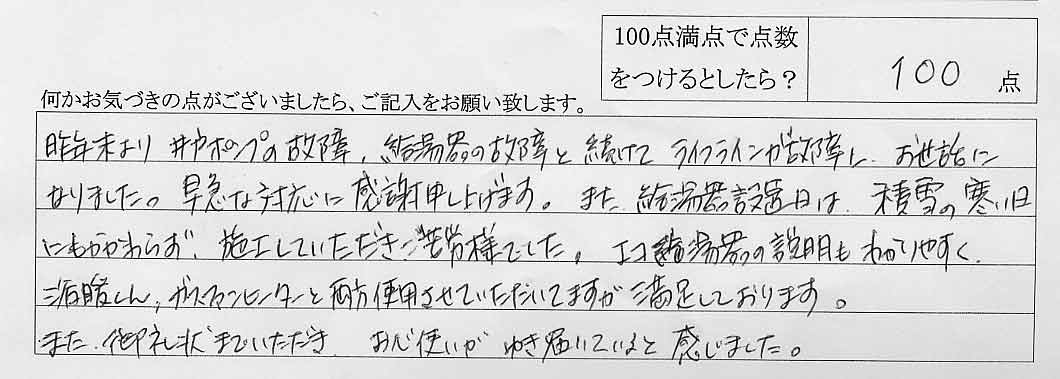 100点満点で点数
をつけるとしたら？
100 点
何かお気づきの点がございましたら、ご記入をお願い致します。
昨年末より 井戸ポンプの故障、給湯器の故障と 続けて ライフラインが故障し、お世話に
なりました。早急な対応に 感謝申し上げます。また 給湯器設置日は、積雪の寒い日
にもかかわらず、施工していただきご苦労様でした。エコ給湯器の説明も わかりやすく、
浴暖くん、ガスファンヒーターと両方使用させていただいてますが 満足しております。
また、御礼状までいただき お心使いが ゆき届いていると 感じました。